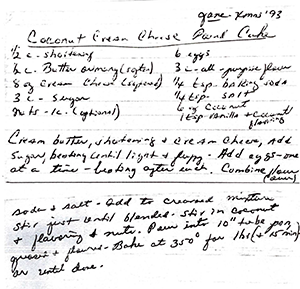 Jane - Xmas '93
Coconut Cream Cheese Pound Cake
1/2 c - shortening 6 eggs
c. Butter or marg (softened) 3 c - all-purpose flour
8 oz Cream Cheese (softened) 1/4 tsp baking soda
3 c - sugar 1/4 tsp - salt
nuts - 1c. (optional) Coconut
1 tsp - vanilla + Coconut
flavoring
Cream butter, shortening + Cream Cheese, Add
Sugar, beating until light + fluffy. Add eggs - one
at a time - beating after each. Combine flour
soda + salt - add to creamed mixture
stir just until blended - stir in coconut
+ flavoring + nuts. Pour into 10" tube pan,
greased + floured - Bake at 350° for 1 hr (+ 15 min)
or until done.